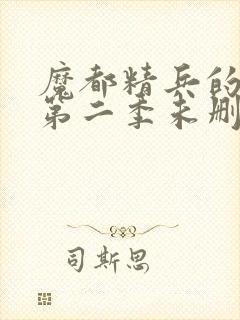 魔都精兵的
第二季未删
司斯思